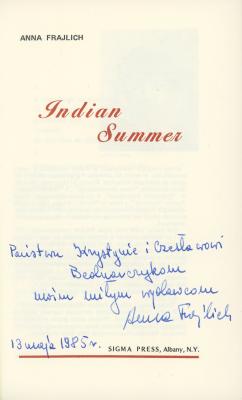 ANNA FRAJLICH
Indian
Summer
Państwu Krystynie i Czesławowi
Bednarczykom
moim miłym wydawcom
Anna Frajlich
13 maja 1985 r.
SIGMA PRESS, Albany, N.Y.